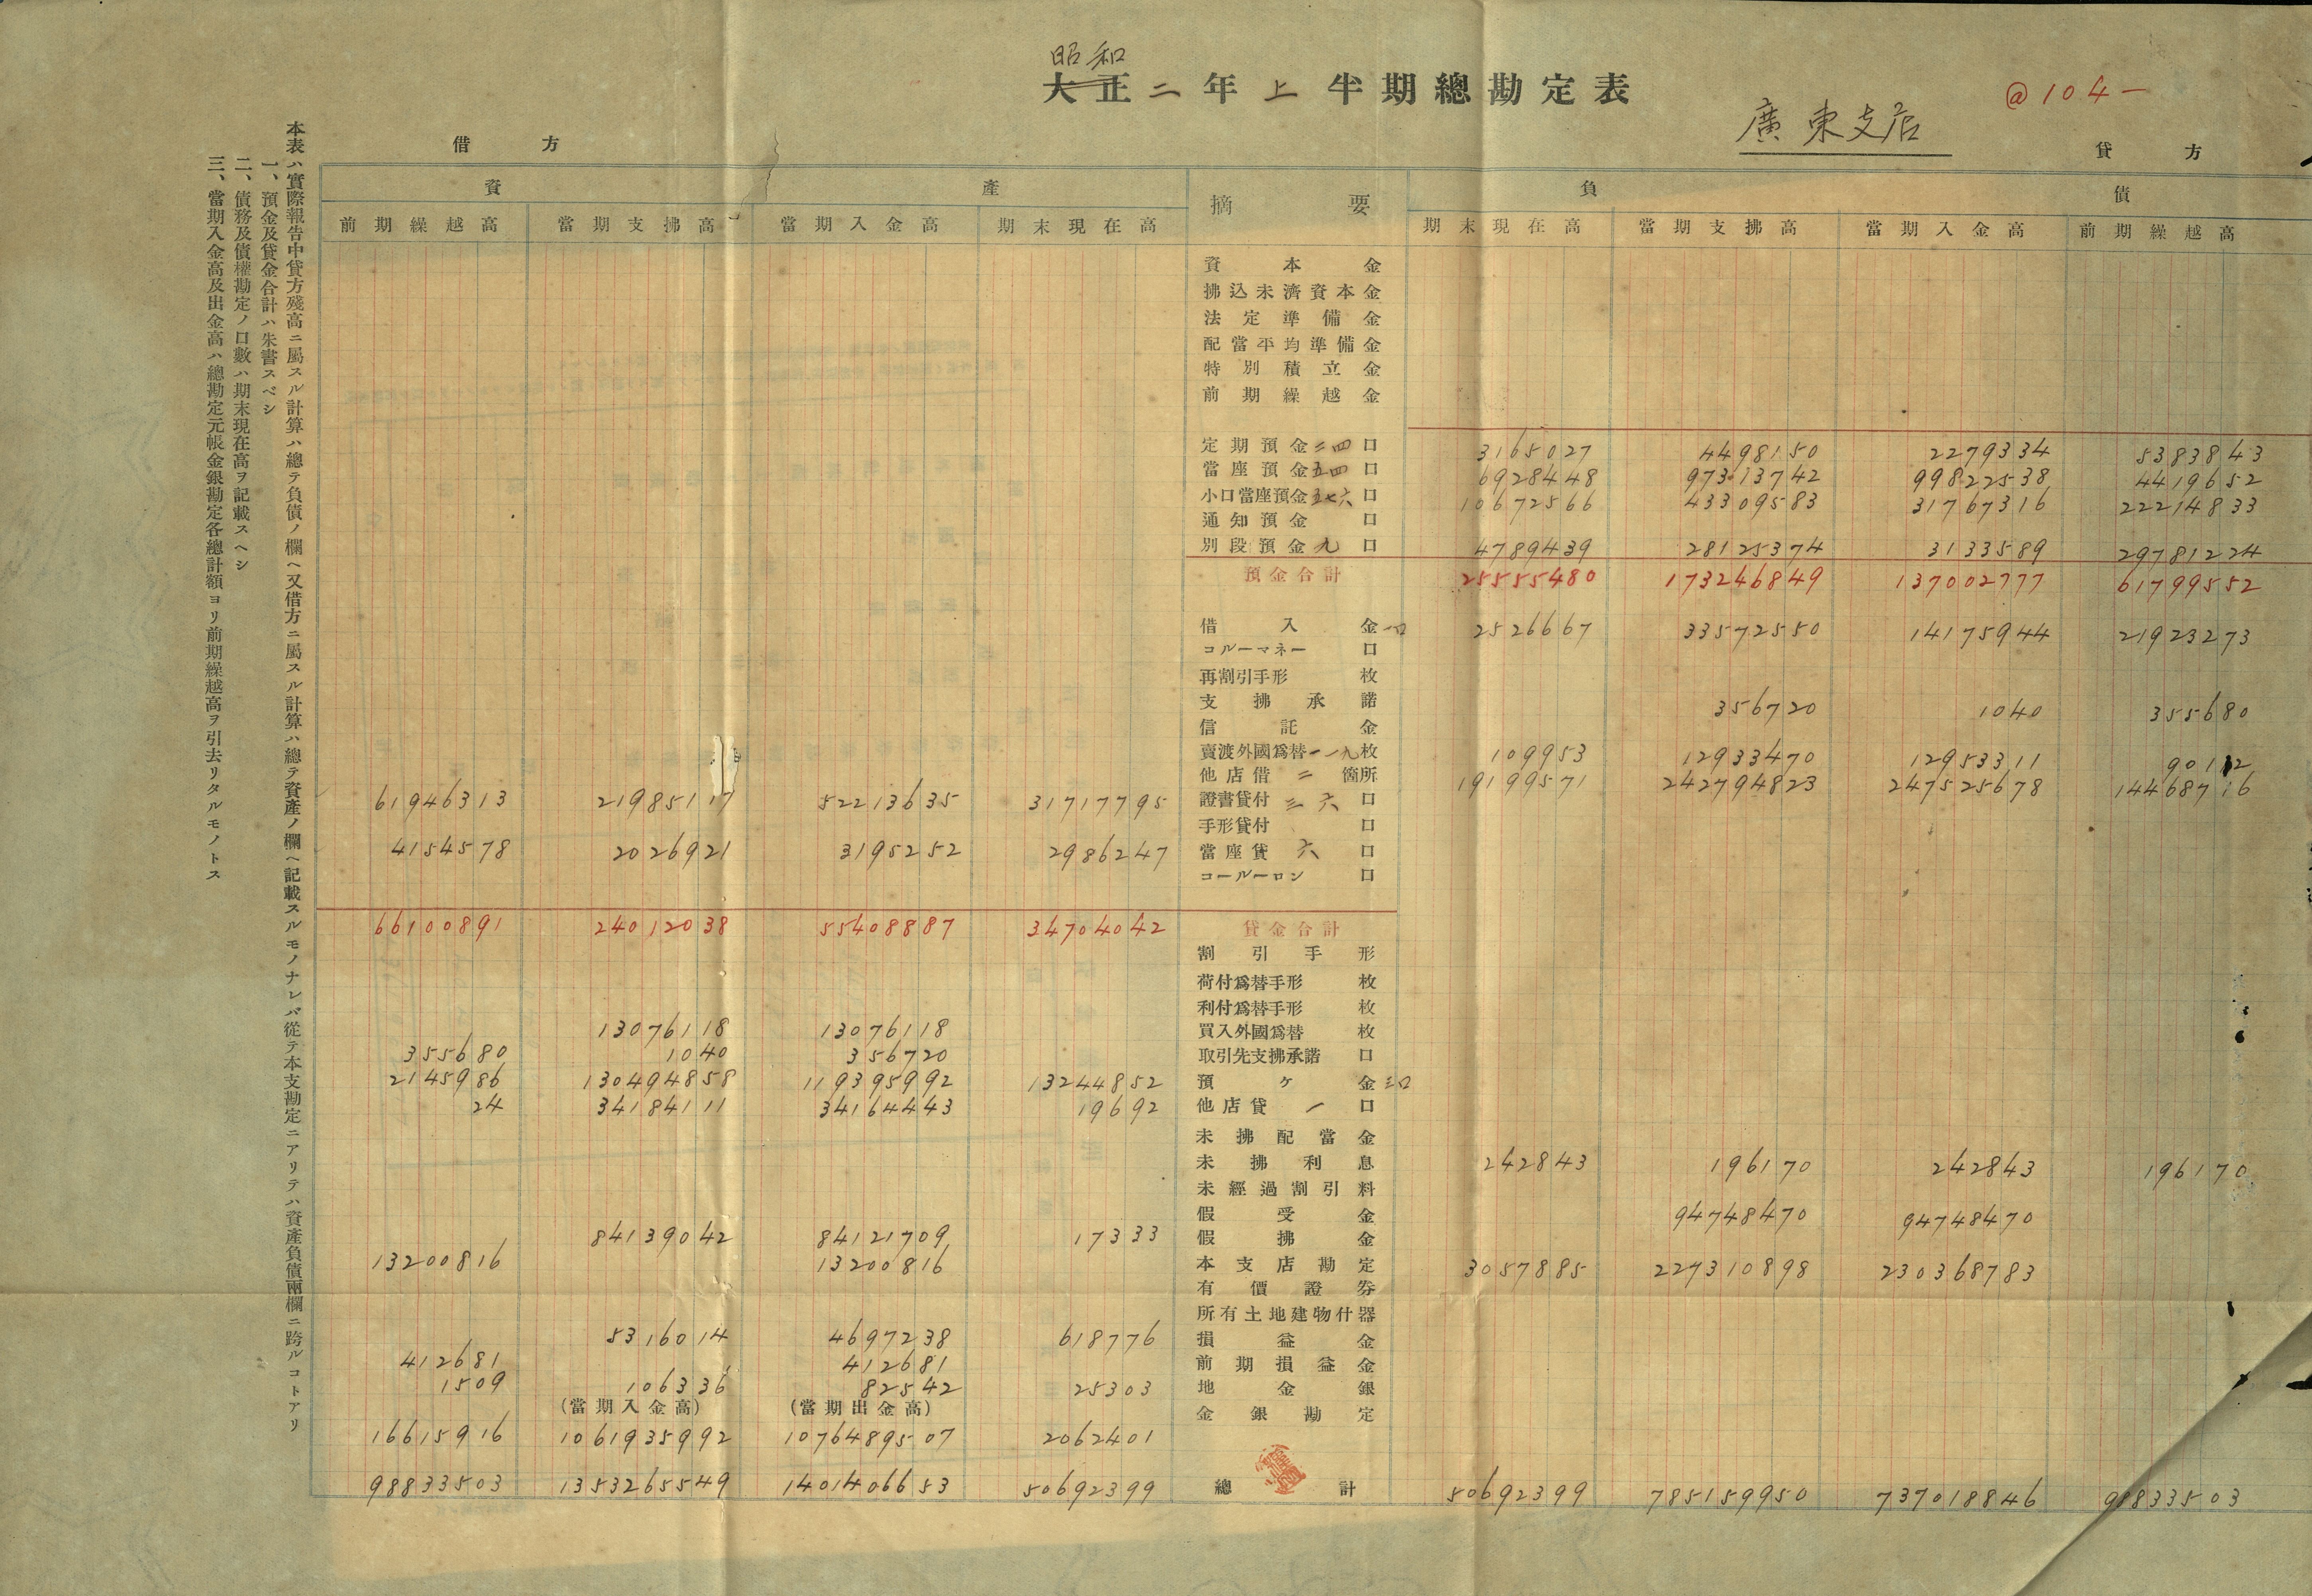 昭和
大正二年上半期總勘定表
@104-
廣東支店
借方
貸方
本表ハ實際報告中貸方殘高ニ屬スル計算ハ總テ負債ノ欄ヘ又借方ニ屬スル計算ハ總テ資產ノ欄ヘ記載スルモノナレバ從テ本支勘定ニアリテハ資產負債兩欄ニ跨ルコトアリ
一、預金及貸金合計ハ朱書スベシ
二、債務及債權勘定ノ口數ハ期末現在高ヲ記載スヘシ
三、當期入金高及出金高ハ總勘定元帳金銀勘定各總計額ヨリ前期繰越高ヲ引去リタルモノトス
資產 摘要 負債
前期繰越高 當期支拂高 當期入金高 期末現在高 期末現在高 當期支拂高 當期入金高 前期繰越高
資本金
拂込未濟資本金
法定準備金
配當平均準備金
特別積立金
前期繰越金
定期預金二四口 3165027 4498150 2279334 5383843
當座預金五四口 6928448 97313742 99822538 4419652
小口當座預金五七六口 10672566 43309583 31767316 22214833
通知預金口
別段預金九口 4789439 28125374 3133589 29781224
預金合計 25555480 173246849 137002777 61799552
借入金一口 2526667 33572550 14175944 21923273
コルーマネー口
再割引手形枚
支拂承諾 356720 1040 355680
信託金
賣渡外國爲替一一九枚 109953 12933470 12953311 90112
他店借二箇所 19199571 242794823 247525678 14468716
61946313 21985117 52213635 31717795 證書貸付三六口
手形貸付口
4154578 2026921 3195252 2986247 當座貸六口
コールーロン口
66100891 24012038 55408887 34704042 貸金合計
割引手形
荷付爲替手形枚
利付爲替手形枚
13076118 13076118 買入外國爲替枚
355680 1040 356720 取引先支拂承諾口
2145986 130494858 119395992 13244852 預ケ金三口
24 34184111 34164443 19692 他店貸一口
未拂配當金
未拂利息 242843 196170 242843 196170
未經過割引料
假受金 94748470 94748470
84139042 84121709 17333 假拂金
13200816 13200816 本支店勘定 3057885 227310898 230368783
有價證券
所有土地建物什器
5316014 4697238 618776 損益金
412681 412681 前期損益金
1509 106336 82542 25303 地金銀
(當期入金高) (當期出金高) 金銀勘定
16615916 1061935992 1076489507 2062401
98833503 1353265549 1401406653 50692399 總計 50692399 785159950 737018846 98833503